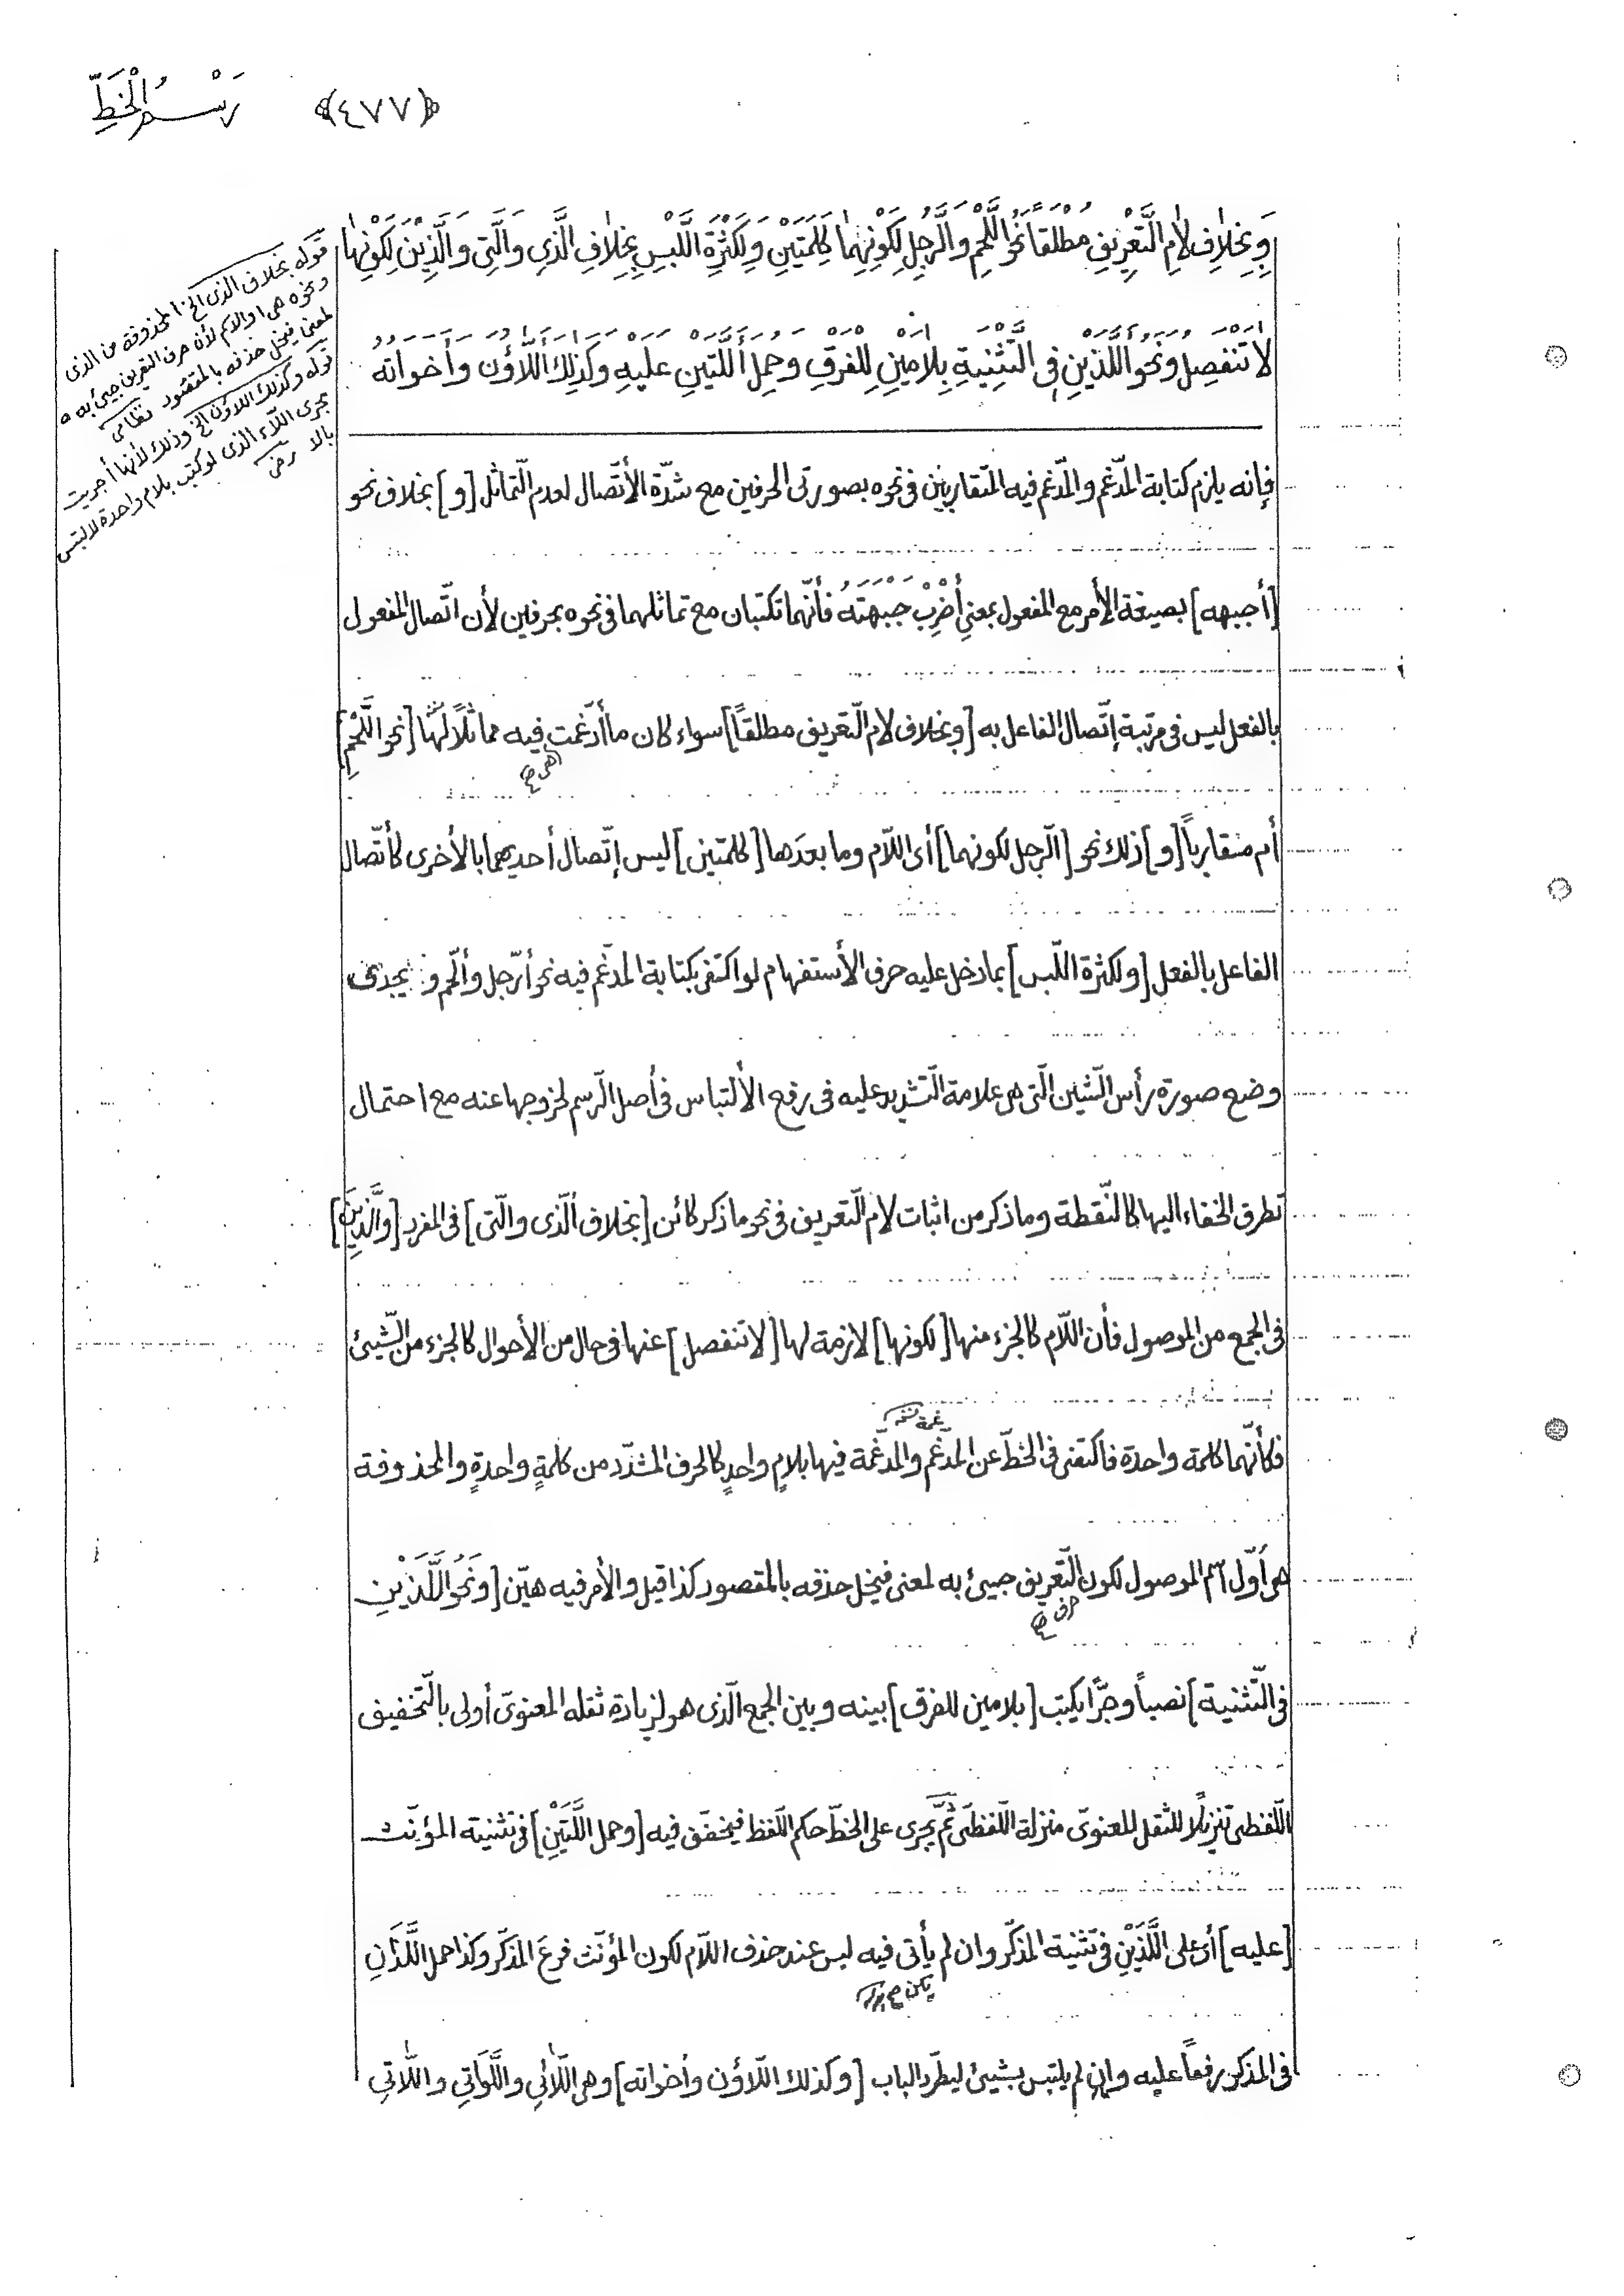 رَسْمُ الْخَطِّ ﴿٤٧٧﴾
وَبِخِلاٰفِ لاٰمِ التَّعْرِيْفِ مُطْلَقاً نَحْوُ اللَّحْمِ وَالرَّجُلِ لِكَوْنِهِمٰا كَلِمَتَيْنِ وَلِكَثْرَةِ اللَّبْسِ بِخِلاٰفِ الَّذِي وَالَّتِي وَالَّذِيْنَ لِكَوْنِهٰا
لاٰ تَنْفَصِلُ وَنَحْوُ اللَّذَيْنِ فِي التَّثْنِيَةِ بِلاٰمَيْنِ لِلْفَرْقِ وَحُمِلَ اللَّتَيْنِ عَلَيْهِ وَكَذٰلِكَ اللاَّؤُنَ وَأَخَوَاتُهُ
فإنه يلزم كتابة المدّغم والمدّغم فيه المتقاربين فى نحوه بصورتى الحرفين مع شدّة الأتّصال لعدم التّماثل [و] بخلاف نحو
[أجبهه] بصيغة الأمر مع المفعول بمعنى أَضْرِبْ جَبْهَتَهُ فأنّهما تكتبان مع تماثلهما فى نحوه بحرفين لأن اتّصال المفعول
بالفعل ليس فى مرتبة إتّصال الفاعل به [وبخلاف لام التّعريف مطلقاً] سواء كان ما أدّغمت فيه مماثلاً لهٰا [نحو اللَّحْمِ]
أم متقارباً [و] ذلك نحو [الرّجل لكونهما] أى اللّام وما بعدَها [كلمتين] ليس إتّصال أحديهما بالأخرى كأتّصال
الفاعل بالفعل [ولكثرة اللّبس] بما دخل عليه حرف الأستفهام لو اكتفى بكتابة المدّغم فيه نحو أرّجل وألّحم و يجدى
وضع صورة رأس الشّين الّتى هى علامة التّشديد عليه فى رفع الألتباس فى أصل الرّسم لخروجها عنه مع احتمال
تطرق الخفاء اليها كالنّقطة وما ذكر من اثبات لام التّعريف فى نحو ما ذكر كائن [بخلاف الّذى والّتى] فى المفرد [وَالَّذِينَ]
فى الجمع من الموصول فأن اللّام كالجزء منها [لكونها] لازمة لها [لا تنفصل] عنها فى حال من الأحوال كالجزء من الشّيئ
فكأنّهما كلمة واحدة فاكتفى فى الخطّ عن المدّغم والمدّغمة فيها بلامٍ واحدٍ كالحرف المشدّد من كلمةٍ واحدةٍ والمحذوفة
هى أوّل اسم الموصول لكون التّعريف جيئ به لمعنى فيخل حذفه بالمقصود كذا قيل والأمر فيه هيّن [وَنَحْوُ اللَّذَيْنِ
فى التّثنية] نصباً وجرًّا يكتب [بلامين للفرق] بينه وبين الجمع الّذى هو لزيادة ثقله المعنوىّ أولى بالتّخفيف
اللّفظى تنزيلًا للثّقل المعنوىّ منزلة اللّفظىّ ثمّ يجرى على الخطّ حكم اللّفظ فيخفّف فيه [وحمل اللَّتَيْنِ] فى تثنية المؤنّث
[عليه] أى على اللَّذَيْنِ فى تثنية المذكّر وان لم يأتى فيه لبس عند حذف اللّام لكون المؤنّث فرعَ المذكّر وكذا حمل اللَّذانِ
فى المذكر رفعاً عليه وإن لم يلتبس بشيئ ليطرّد الباب [وكذلك اللّاؤن وأخواته] وهى اللّائِي واللَّوَاتِي واللّاتِي
قوله بخلاف الذى الخ المحذوفة من الذى
ونحوه هى اواللام لأن حرف التعريف جيئ به
لمعنى فيخل حذفه بالمقصود نظامى
قوله وكذلك اللاؤن الخ وذلك لأنها أجريت
مجرى اللّاء الذى لو كتب بلام واحدة لالتبس
بالا رضى